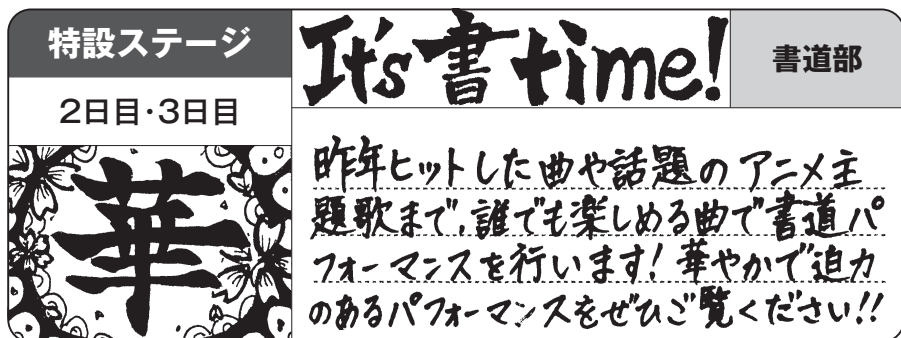 特設ステージ
It's書time!
書道部
2日目・3日目
華
昨年ヒットした曲や話題のアニメ主
題歌まで、誰でも楽しめる曲で書道パ
フォーマンスを行います!華やかで迫力
のあるパフォーマンスをぜひご覧ください!!